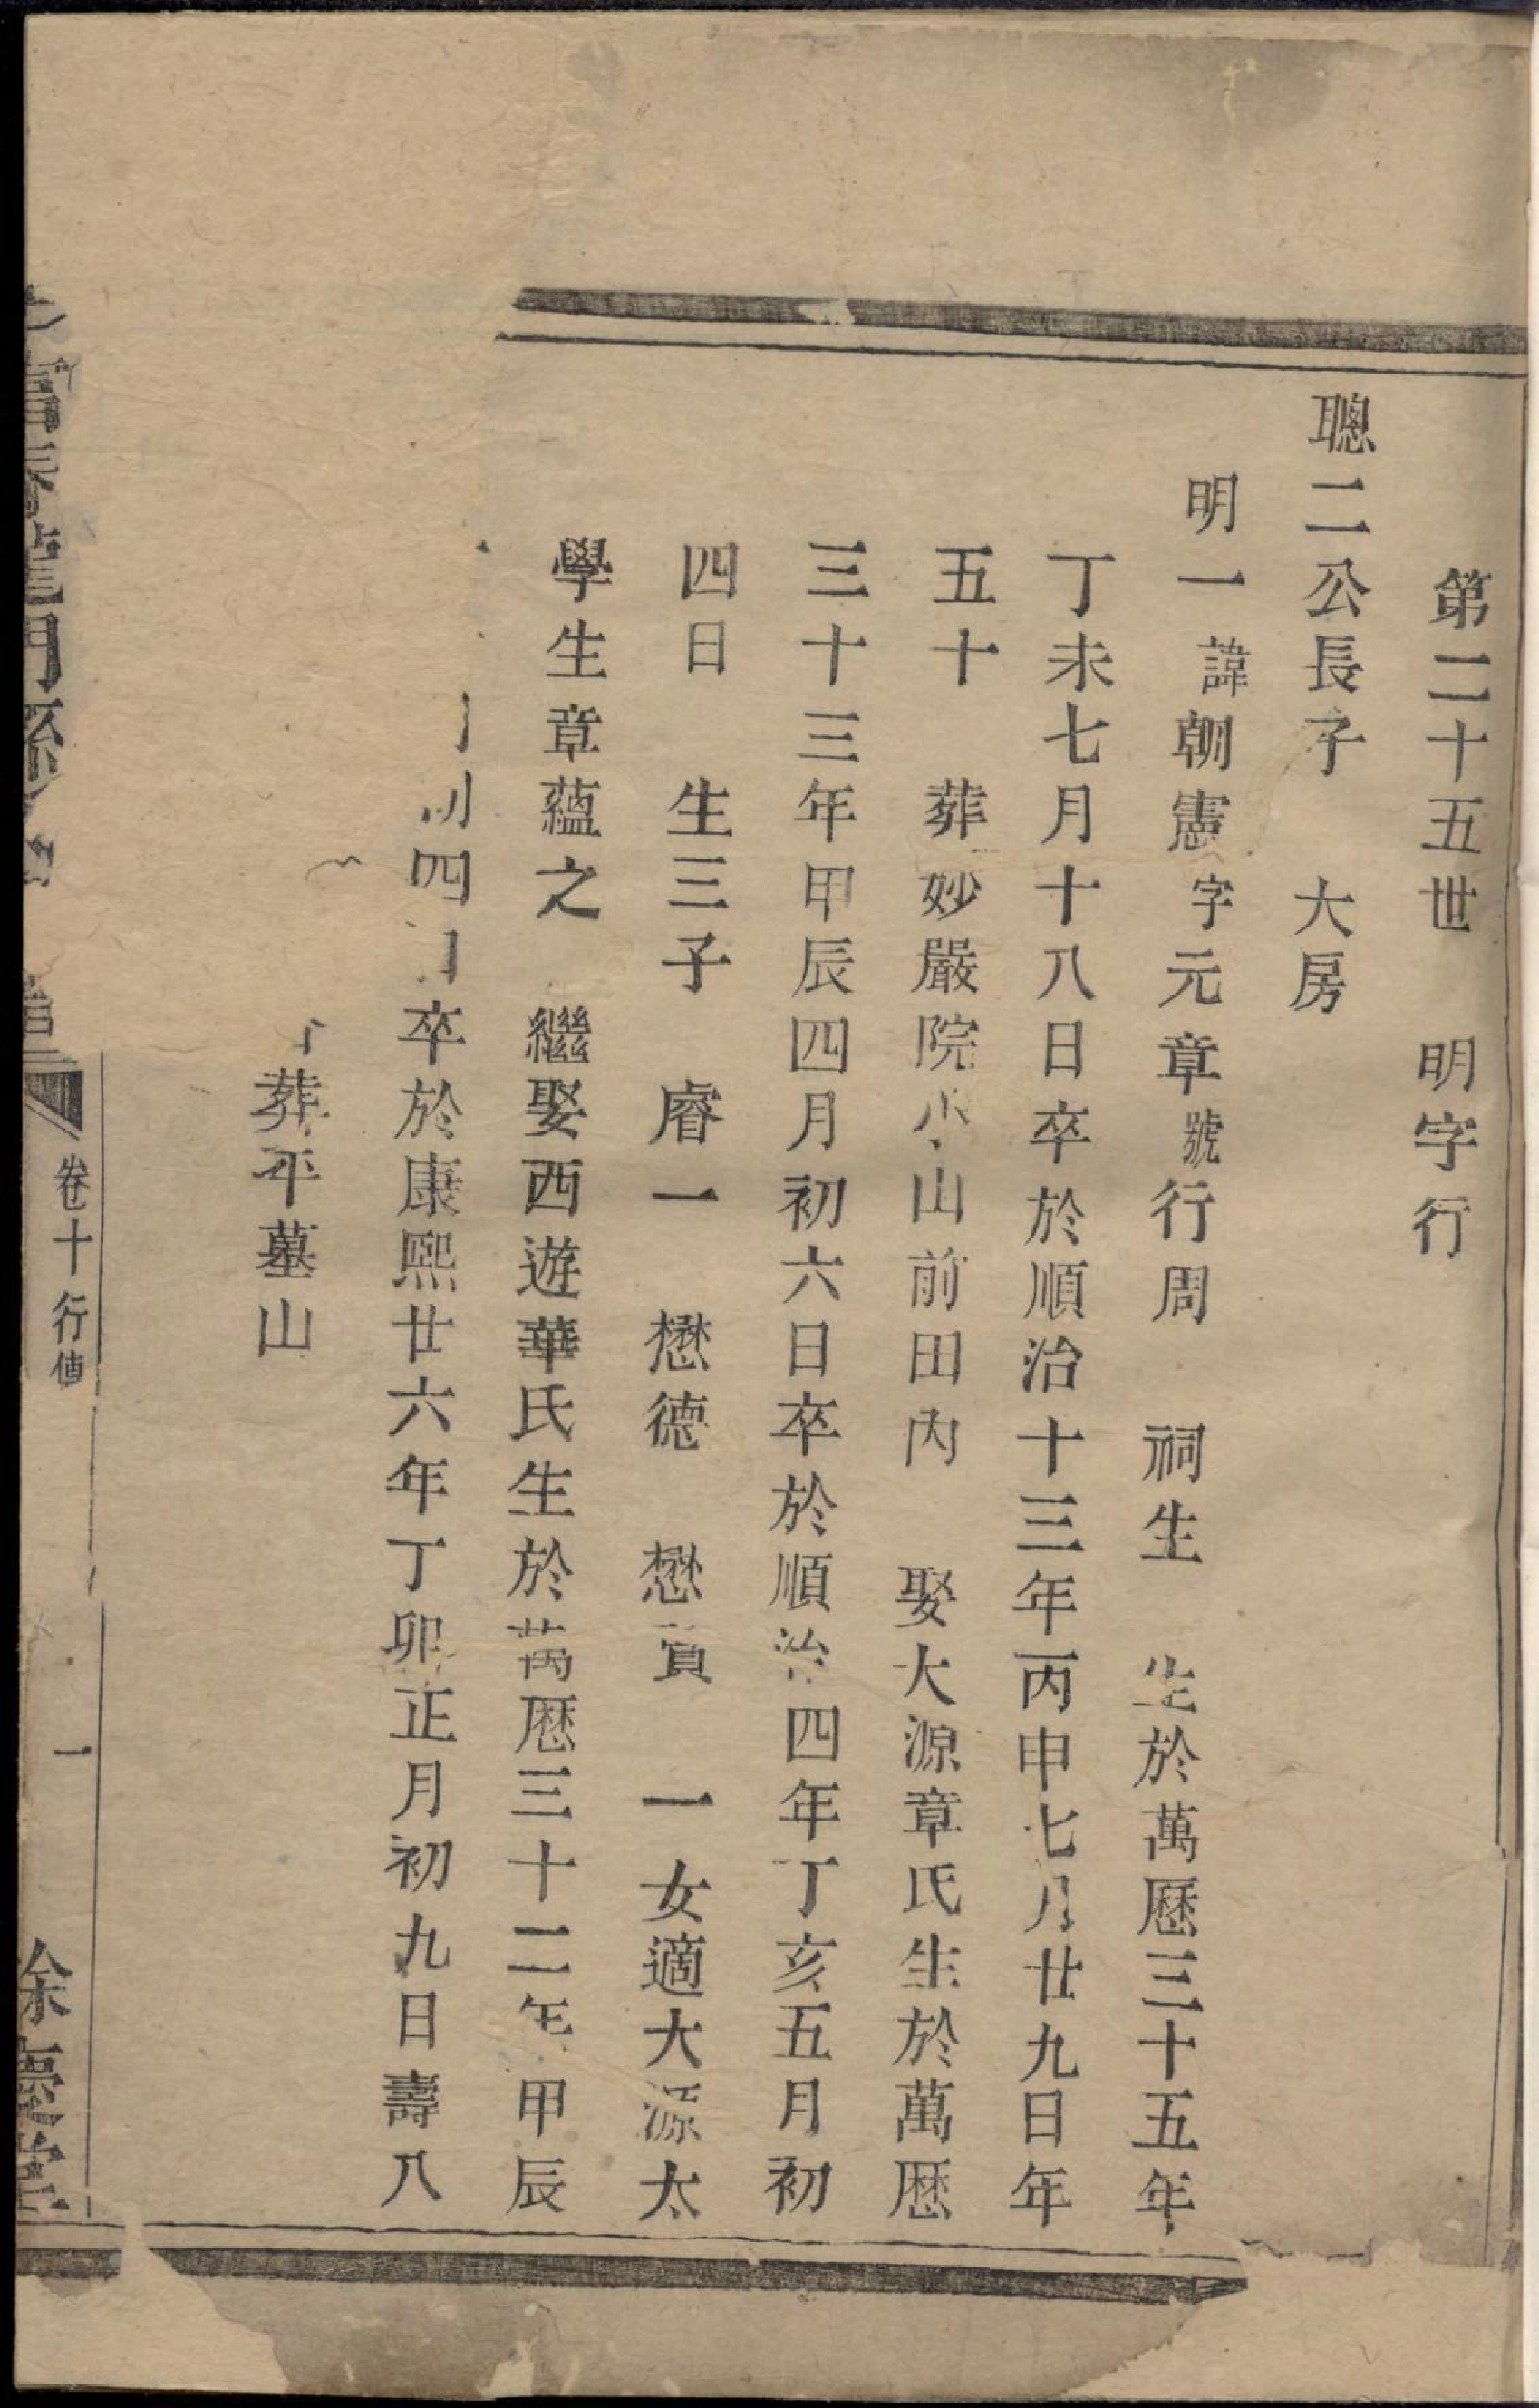 第二十五世　明字行
聰二公長子　大房
明一諱朝憲字元章號行周　祠生　生於萬歷三十五年
丁未七月十八日卒於順治十三年丙申七月廿九日年
五十　葬妙嚴院水山前田內　娶大源章氏生於萬歷
三十三年甲辰四月初六日卒於順治四年丁亥五月初
四日　生三子　睿一　懋德　懋賞　一女適大源太
學生章蘊之　繼娶西遊華氏生於萬歷三十二年甲辰
四日卒於康熙廿六年丁卯正月初九日壽八
葬平墓山
富春龍門孫
卷十　行傳　一
餘慶堂